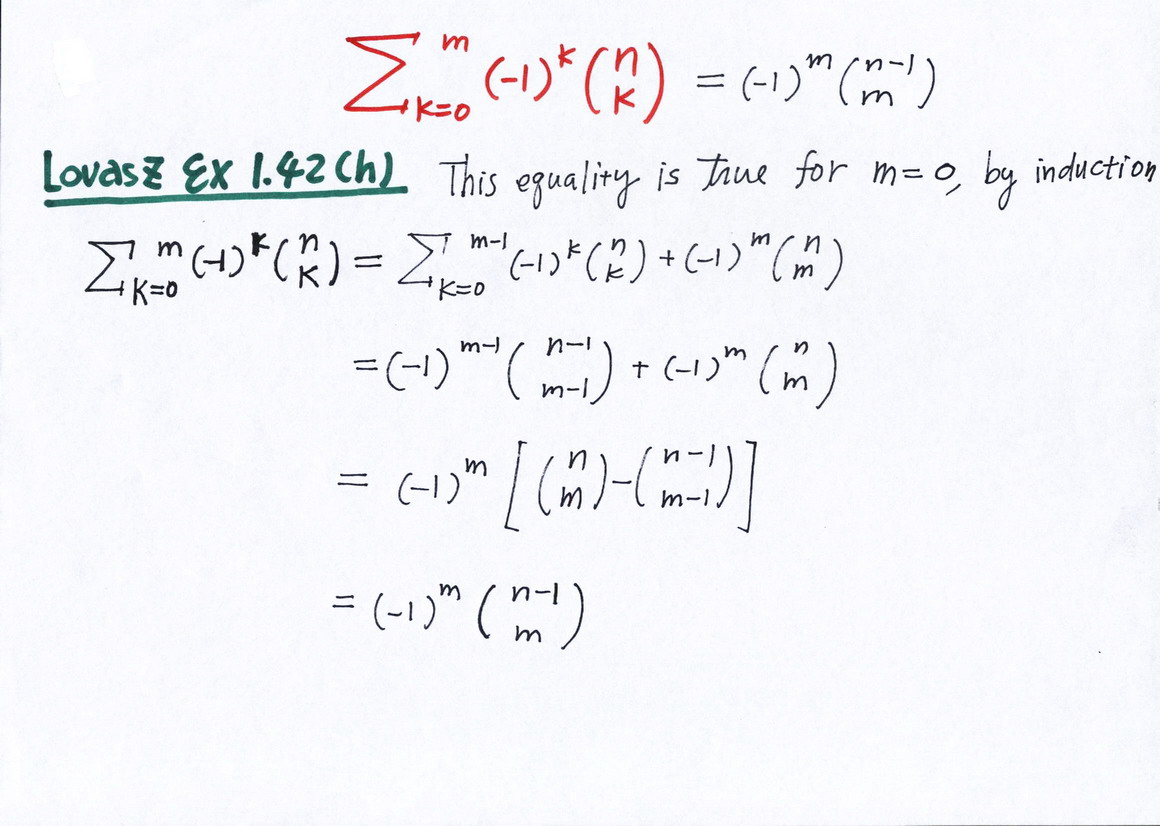 ∑_{k=0}^{m} (-1)^k (n k) = (-1)^m (n-1 m)
Lovasz Ex 1.42(h) This equality is true for m=0, by induction
∑_{k=0}^{m} (-1)^k (n k) = ∑_{k=0}^{m-1} (-1)^k (n k) + (-1)^m (n m)
= (-1)^{m-1} (n-1 m-1) + (-1)^m (n m)
= (-1)^m [(n m) - (n-1 m-1)]
= (-1)^m (n-1 m)